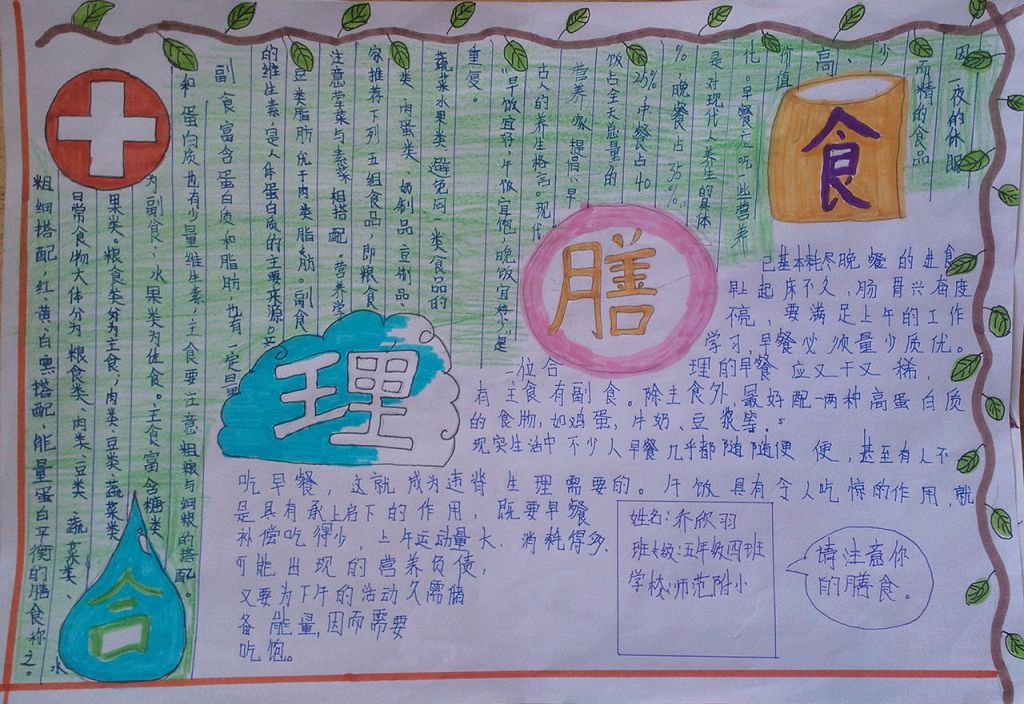 合
理
膳
食
粗细搭配,红、黄、白、黑搭配、能量蛋白平衡的膳食称之。水
日常食物大体分为粮食类、肉类、豆类、蔬菜类、
果类。粮食类分为主食,肉类、豆类、蔬菜类
为副食,水果类为佐食。主食富含糖类
和蛋白质也有少量维生素,主食要注意粗粮与细粮的搭配。
副食富含蛋白质和脂肪,也有一定量
的维生素,是人体蛋白质的主要来源。
豆类脂肪优于肉类脂肪。副食
注意荤菜与素菜相搭配。营养学
家推荐下列五组食品,即粮食
类、肉蛋类、奶制品、豆制品、
蔬菜水果类,避免同一类食品的
重复。
"早饭宜好,午饭宜饱,晚饭宜少"是
古人的养生格言。现代
营养家提倡:早
饭占全天总量的
25%,中餐占40
%,晚餐占35%,
是对现代人养生的具体
化。早餐应吃一些营养
价值
高、少
而精的食品
因一夜的休眠
已基本耗尽晚餐的进食
早上起床不久,肠胃兴奋度
不高,要满足上午的工作
学习,早餐必须量少质优。
一位合理的早餐应又干又稀,
有主食有副食。除主食外,最好配一两种高蛋白质
的食物,如鸡蛋、牛奶、豆浆等。
现实生活中不少人早餐几乎都随随便便,甚至有人不
吃早餐,这就成为违背生理需要的。午饭具有令人吃惊的作用,就
是具有承上启下的作用,既要早餐
补偿吃得少,上午运动量大,消耗得多,
可能出现的营养负债,
又要为下午的活动久需储
备能量,因而需要
吃饱。
姓名:乔欣羽
班级:五年级四班
学校:师范附小
请注意你
的膳食。